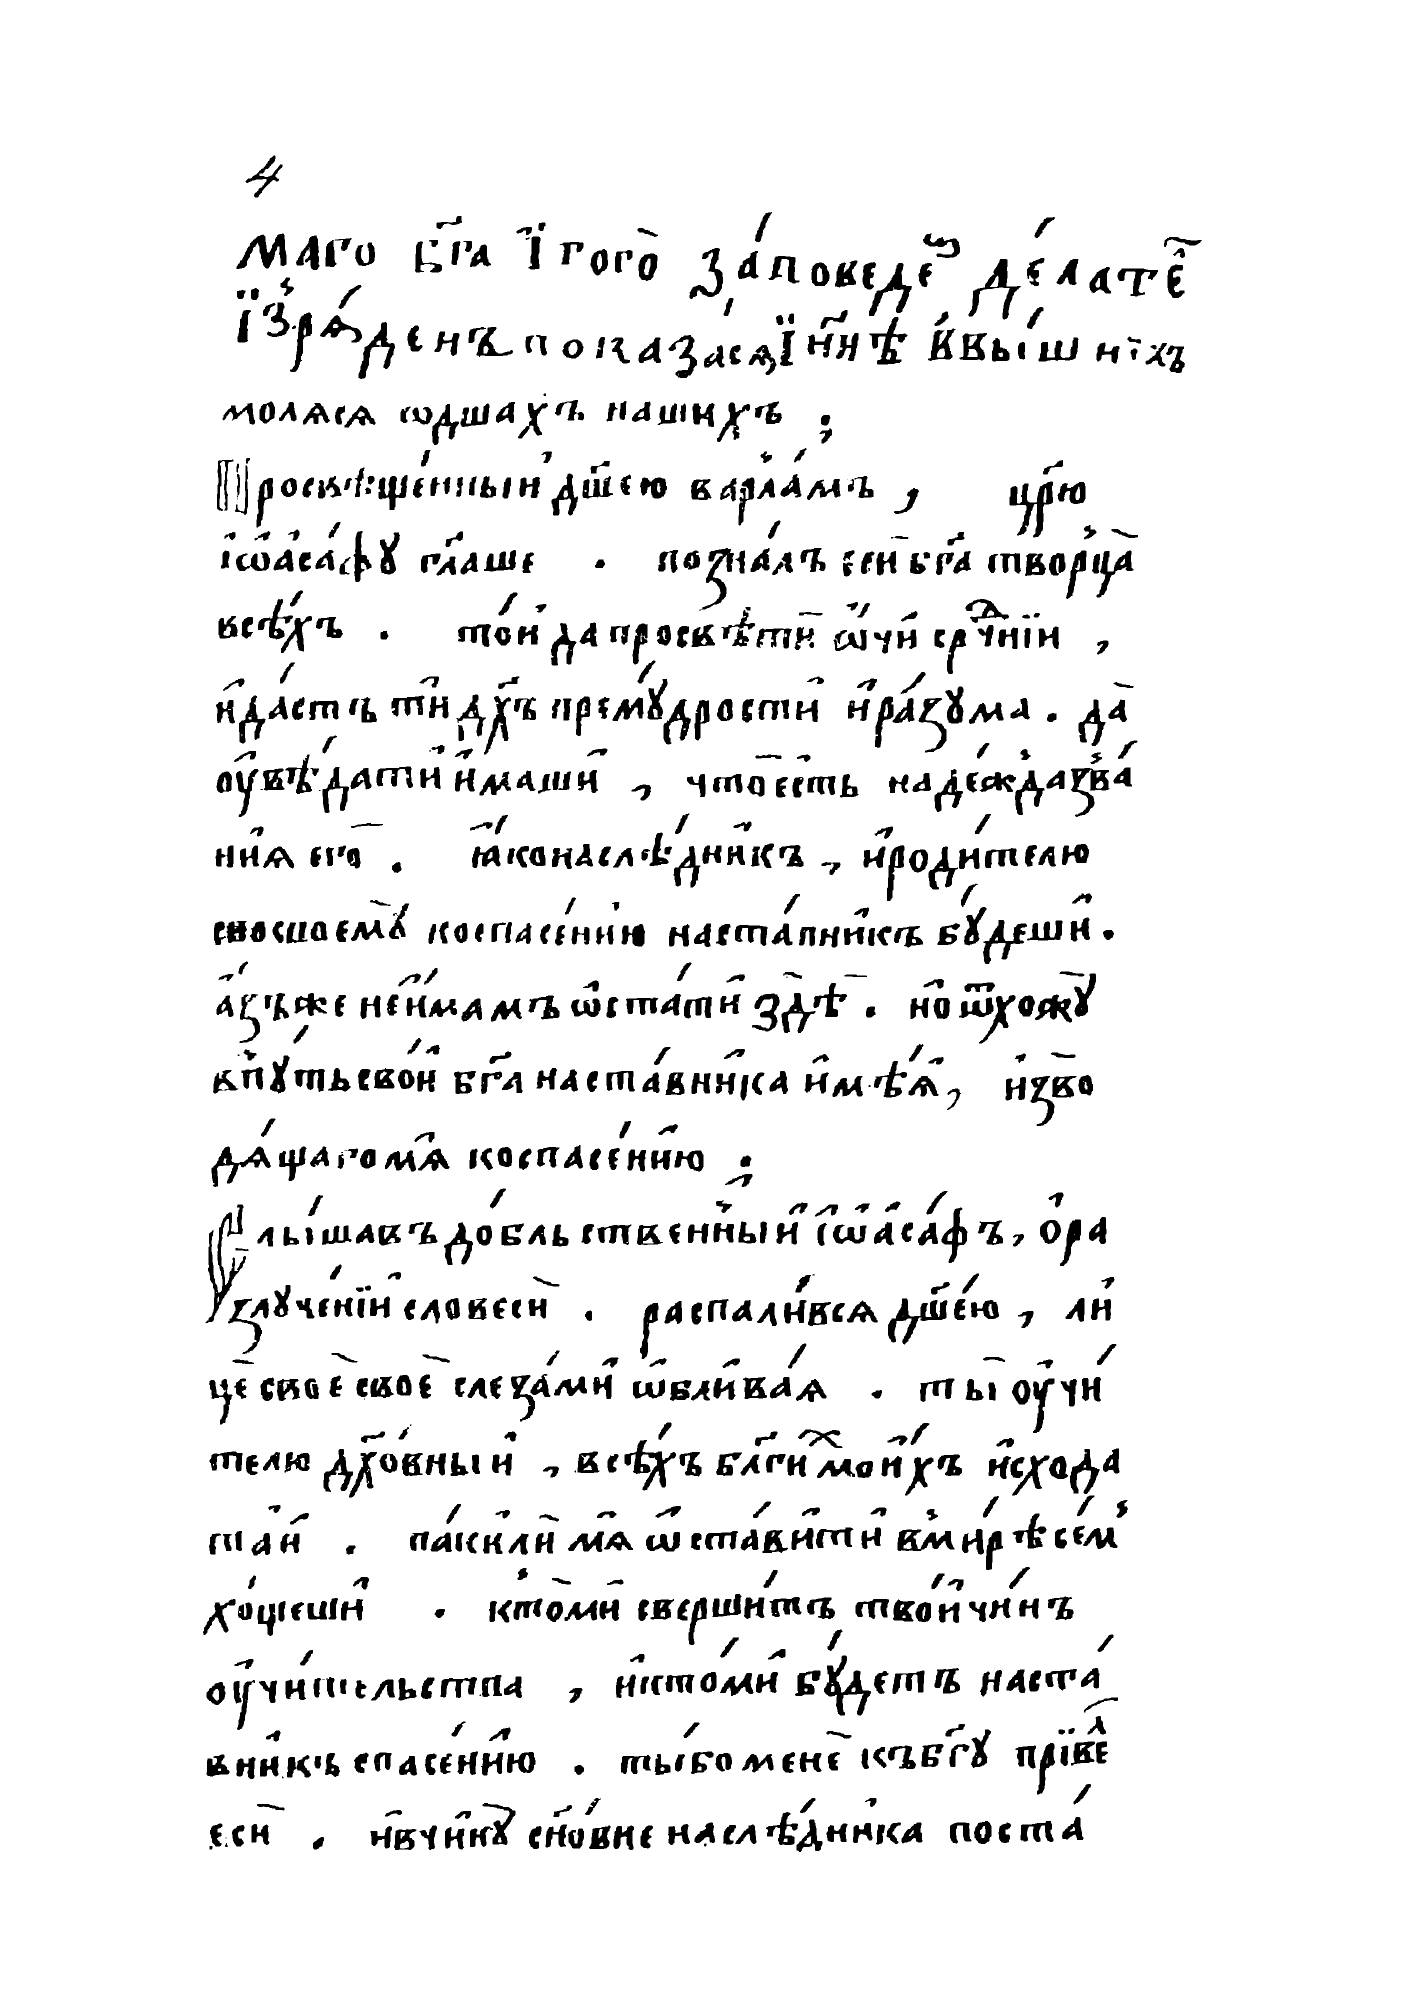 4
маго бг҃а ї того̀ за́поведе́й де́лате̑
їзрѧ́денъ показа́сѧ ї нн҃ѣ ввы́шнїхъ
молѧсѧ ѡдшахъ нашихъ ;
Просвѣще́нный дш҃ею варла́мъ , цр҃ю
і҆ѡ҆а҆са́фꙋ гл҃аше . позна́лъ еси̑ бг҃а творца̀
всѣ́хъ . то́й да просвѣти̑ ѡ҆́чи срдⷣчнїи ,
и҆да́стъ ти̑ дх҃ъ премꙋ́дрости и҆ра́зꙋма . да̀
оу҆вѣ́дати и҆́маши , что̀есть наде́жда зва́
нїѧ его̀ . ꙗ҆́конаслѣ́дникъ , и҆роди́телю
своемꙋ̀ коспасе́нию наста́вникъ бꙋ́деши .
а҆́зъже неи҆́мамъ ѡ҆ста́ти здѣ̀ . но ѿхожꙋ̀
кпꙋ́ть свой бг҃а наста́вника и҆мѣ́ѧ , и҆зво
дѧ́щагомѧ̑ коспасе́нию .
Слы́шавъ до́бльственный і҆ѡ҆а҆са́фъ , ѻ҆ра
злꙋче́нїи словеси̑ . распали́всѧ дш҃е́ю , ли
цѐ своѐ своѐ слеза́ми ѡ҆блива́ѧ . ты̀ оу҆чи́
телю дх҃о́вный , всѣ́хъ бл҃гиⷯ мои́хъ и҆схода
тай . па́кили̑ мѧ̑ ѡ҆ста́вити вми́рѣ се́м
хо́щеши . кто̀ми̑ сверши́тъ тво́й чи́нъ
оу҆чи́тельства , и҆кто́ми бꙋ́детъ наста́
вникъ спасе́нию . ты́бо менѐ къбг҃ꙋ прївеⷧ҇
еси̑ . и҆вчи́нꙋ сн҃о́вне наслѣ́дника поста́